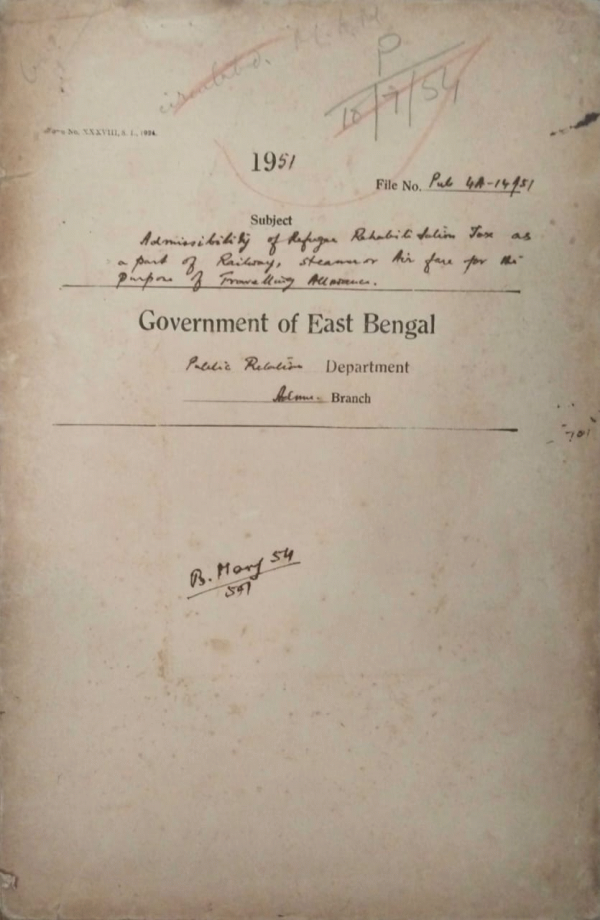 circulated.
P
18/7/54
Form No. XXXVIII, S. I., 1934.
1951
File No. Pub 4A-14/51
Subject
Admissibility of Refugee Rehabilitation Tax as
a part of Railway, steamer or Air fare for the
purpose of Travelling Allowance.
Government of East Bengal
Public Relation Department
Admn. Branch
B. May 54
591